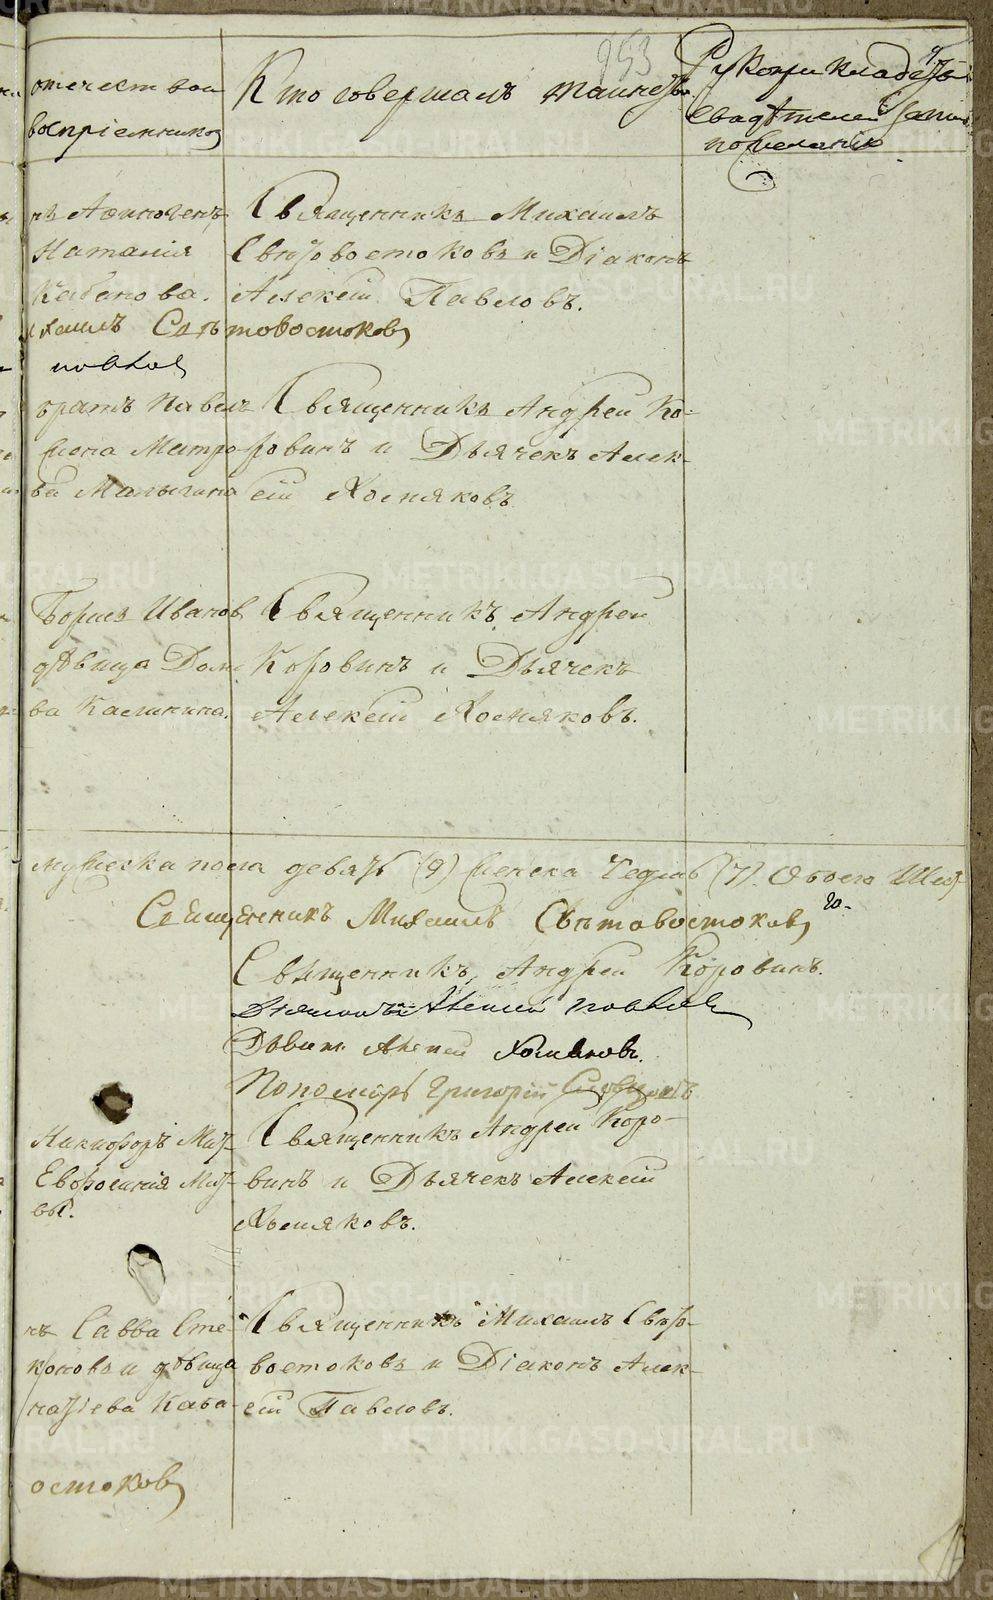 953
отечество и
воспріемниковъ
Кто совершалъ таинство
Рукоприкладство
свидѣтелей запи
по желанію
нъ Афиногенъ
Наталія
Кабакова.
Священникъ Михаилъ
Свѣтовостоковъ и Діаконъ
Алексѣй Павловъ.
ихаилъ Свѣтовостоковъ
Павловъ
братъ Павелъ
жена Митро
ва Малыгина
Священникъ Андрей Ко-
ровинъ и Дьячекъ Алек-
сѣй Хосняковъ
Борисъ Иванов
дѣвица Дом
ва Калинина.
Священникъ Андрей
Коровинъ и Дьячекъ
Алексѣй Хосняковъ.
мужеска пола девять (9) женска седмь (7). Обоего Шест
го-
Священникъ Михаилъ Свѣтовостоковъ
Священникъ Андрей Коровинъ.
Діаконъ Алексѣй Павловъ
Дьячек Алексей
Пономарь Григорій
Никифоръ Мат-
Евфросинія Мат-
ва.
Священникъ Андрей Коро-
винъ и Дьячекъ Алексѣй
Хосняковъ.
нъ Савва Сте-
коновъ и дѣвица
натіева Каба-
Священникъ Михаилъ Свѣто-
востоковъ и Діаконъ Алек-
сѣй Павловъ.
остоковъ
METRIKI.GASO-URAL.RU